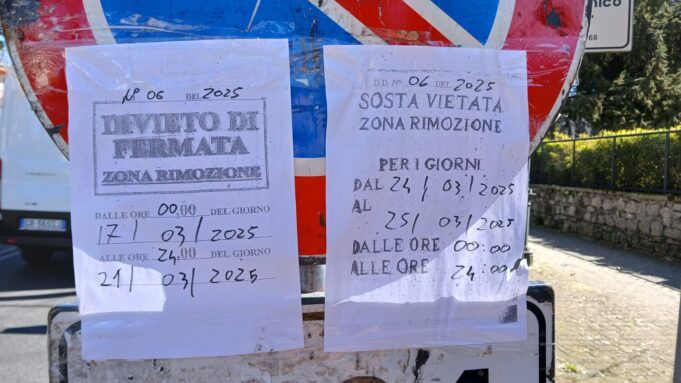 N° 06 DEL 2025
DIVIETO DI
FERMATA
ZONA RIMOZIONE
DALLE ORE 00,00 DEL GIORNO
17/ 03/ 2025
ALLE ORE 24,00 DEL GIORNO
21/ 03/ 2025
D.D. N° 06 DEL 2025
SOSTA VIETATA
ZONA RIMOZIONE
PER I GIORNI
DAL 24/ 03/ 2025
AL
25/ 03/ 2025
DALLE ORE 00:00
ALLE ORE 24:00